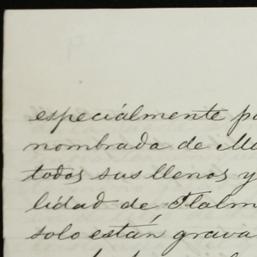 especiálmente
nombrada de
todos sus llenos y
lidad de
solo están grava